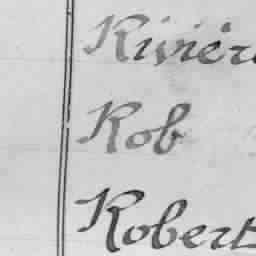 Rivièr
Rob
Robert